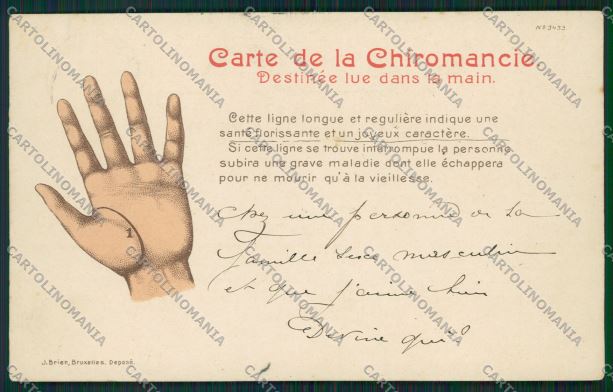 No 3433
Carte de la Chiromancie.
Destinée lue dans la main.
Cette ligne longue et regulière indique une
santé florissante et un joyeux caractère.
Si cette ligne se trouve interrompue la personne
subira une grave maladie dont elle échappera
pour ne mourir qu'à la vieillesse.
chez une personne de ta
famille sexe masculin
et que j'aime bien
Devine qui?
1
J. Brier, Bruxelles. Deposé.
CARTOLINOMANIA